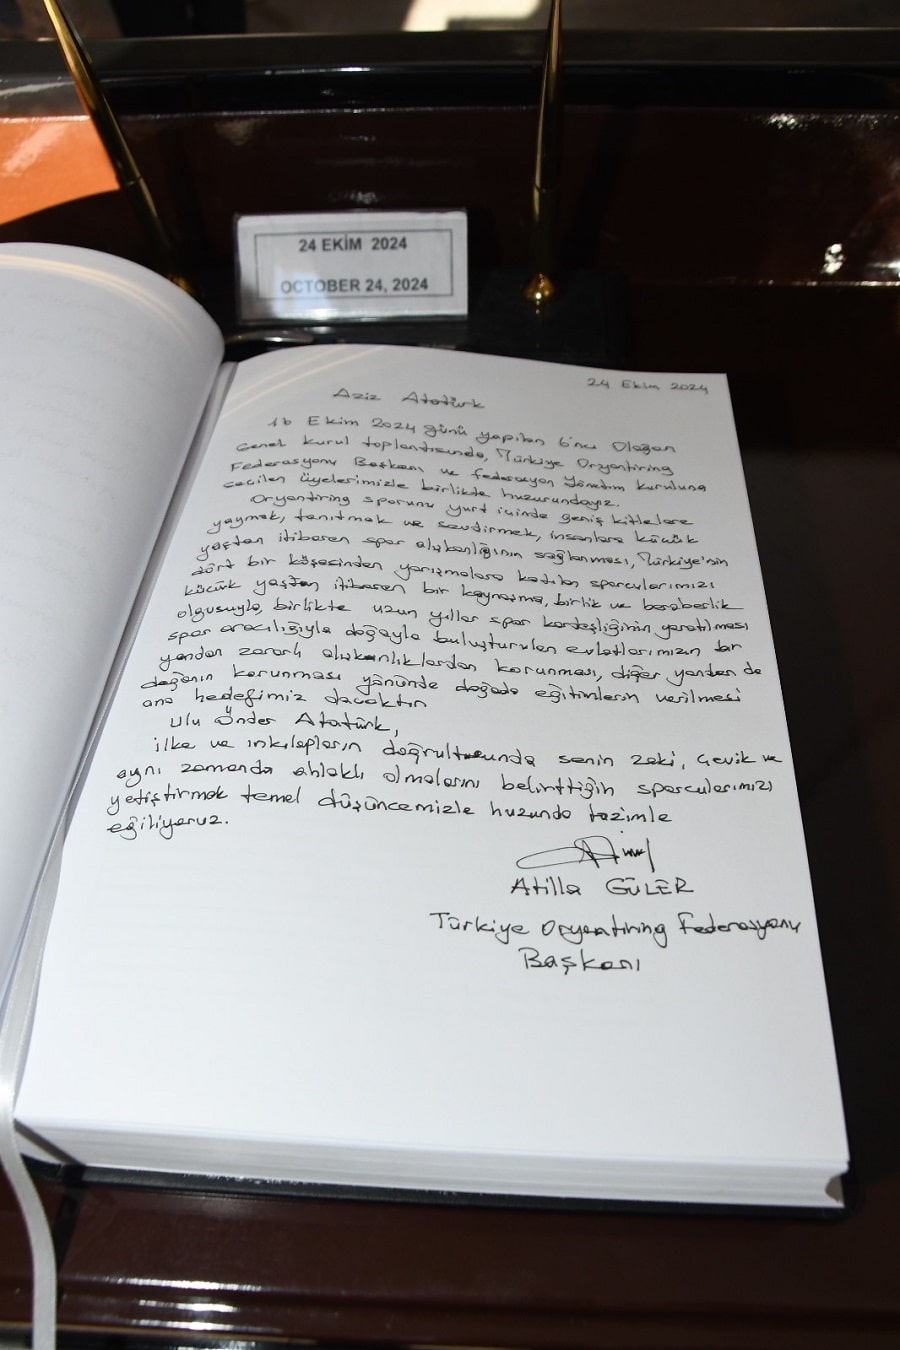 24 EKİM 2024
OCTOBER 24, 2024
24 Ekim 2024
Aziz Atatürk
16 Ekim 2024 günü yapılan 6'ncı Olağan
Genel Kurul toplantısında, Türkiye Oryantiring
Federasyonu Başkanı ve federasyon Yönetim kuruluna
seçilen üyelerimizle birlikte huzurundayız.
Oryantiring sporunu yurt içinde geniş kitlelere
yaymak, tanıtmak ve sevdirmek, insanlara küçük
yaştan itibaren spor alışkanlığının sağlanması, Türkiye'nin
dört bir köşesinden yarışmalara katılan sporcularımızı
küçük yaştan itibaren bir kaynaşma, birlik ve beraberlik
olgusuyla, birlikte uzun yıllar spor kardeşliğinin yaratılması
spor aracılığıyla doğayla buluşturulan evlatlarımızın bir
yandan zararlı alışkanlıklardan korunması, diğer yandan da
doğanın korunması yönünde doğada eğitimlerin verilmesi
ana hedefimiz olacaktır.
Ulu Önder Atatürk,
ilke ve inkılapların doğrultusunda senin zeki, çevik ve
aynı zamanda ahlaklı olmalarını belirttiğin sporcularımızı
yetiştirmek temel düşüncemizle huzunda tazimle
eğiliyoruz.
Atilla GÜLER
Türkiye Oryantiring Federasyonu
Başkanı